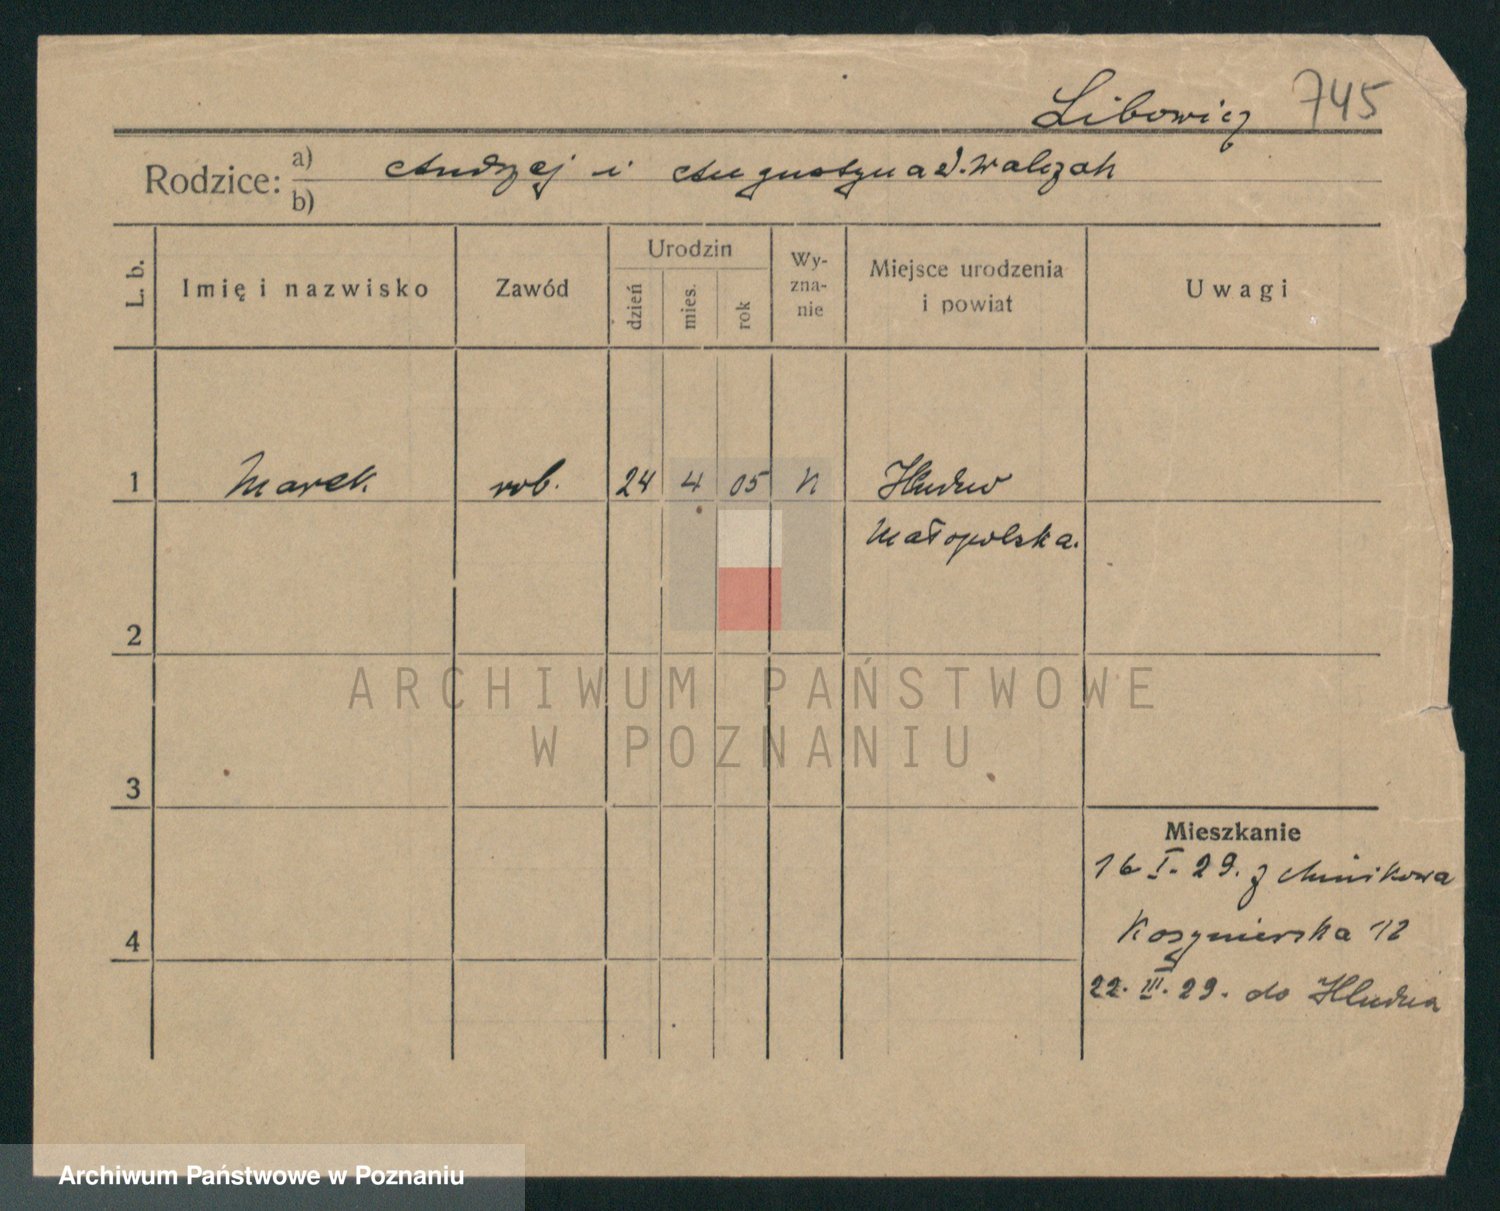 Libowicz 745
Rodzice: a) Andrzej i Augustyna d. Walczak
b)
L. b. Imię i nazwisko Zawód Urodzin dzień mies. rok Wy-zna-nie Miejsce urodzenia i powiat Uwagi
1 Marek rob. 24 4 05 K
Małopolska.
2
ARCHIWUM PAŃSTWOWE
W POZNANIU
3
Mieszkanie
16 I. 29. z
4 12
22. III. 29. do
Archiwum Państwowe w Poznaniu